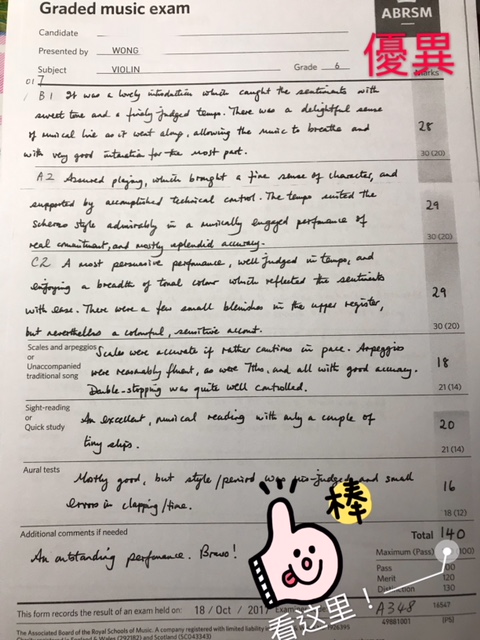 Graded music exam
ABRSM
Candidate
Presented by WONG
Subject VIOLIN Grade 6
優異
Marks
017
B1 It was a lovely introduction which caught the sentiments with
sweet tone and a finely judged tempo. There was a delightful sense
of musical line as it went along, allowing the music to breathe and
with very good intonation for the most part.
28
30 (20)
A2 Assured playing, which brought a fine sense of character, and
supported by accomplished technical control. The tempo suited the
scherzo style admirably in a musically engaged performance of
real commitment, and mostly splendid accuracy.
29
30 (20)
C2 A most persuasive performance, well judged in tempo, and
enjoying a breadth of tonal colour which reflected the sentiments
with ease. There were a few small blemishes in the upper register,
but nevertheless a colourful, sensitive account.
29
30 (20)
Scales and arpeggios
or
Unaccompanied
traditional song
Scales were accurate if rather cautious in pace. Arpeggios
were reasonably fluent, as were 7ths, and all with good accuracy.
Double-stopping was quite well controlled.
18
21 (14)
Sight-reading
or
Quick study
An excellent, musical reading with only a couple of
tiny slips.
20
21 (14)
Aural tests
Mostly good, but style/period was mis-judged and small
errors in clapping/time.
16
18 (12)
棒
Additional comments if needed
An outstanding performance. Bravo!
Total 140
Maximum (Pass) 100)
Pass 100
Merit 120
Distinction 130
看这里！
This form records the result of an exam held on: 18 / Oct / 2017 Examiner
A348 16547
The Associated Board of the Royal Schools of Music. A company registered with limited liability
in England & Wales (292182) and Scotland (SC043343)
49881001 (P5)